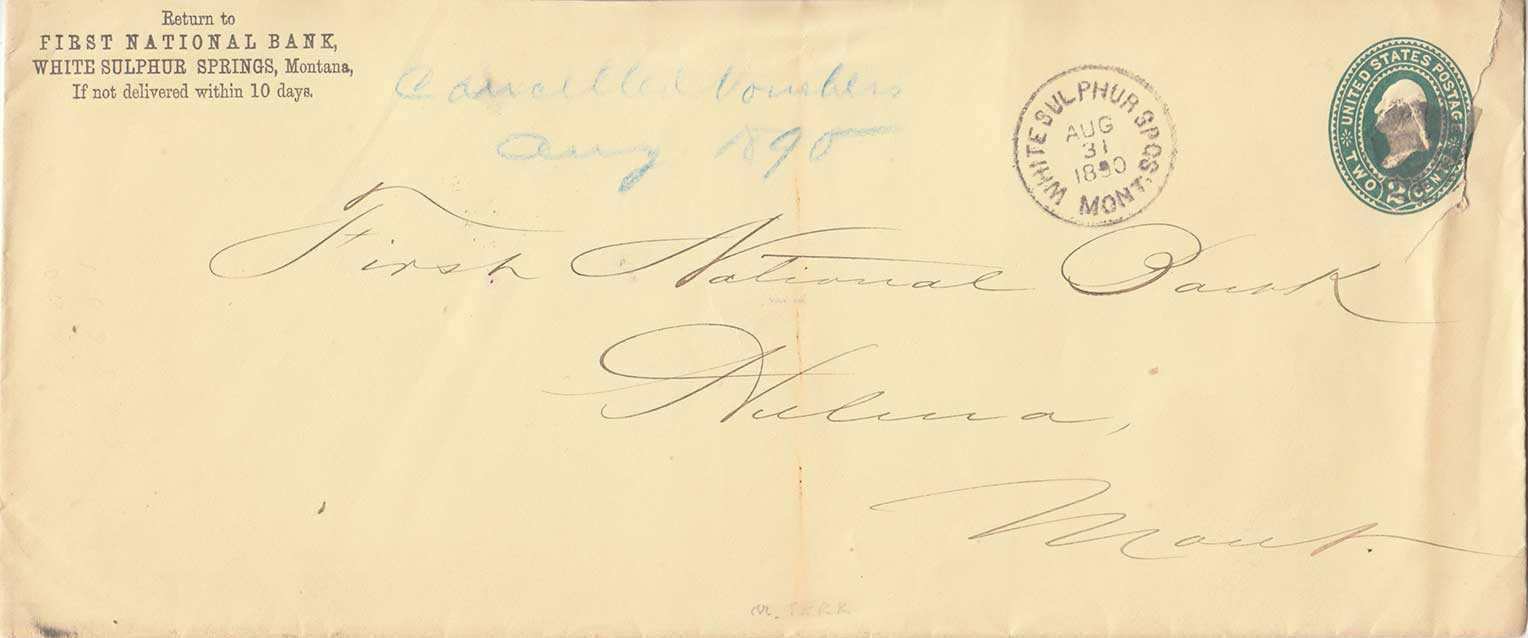 Return to
FIRST NATIONAL BANK,
WHITE SULPHUR SPRINGS, Montana,
If not delivered within 10 days.
Cancelled Vouchers
Aug 1890
WHITE SULPHUR SPGS. MONT.
AUG
31
1890
UNITED STATES POSTAGE
TWO 2 CENTS
First National Bank
Helena,
Mont.